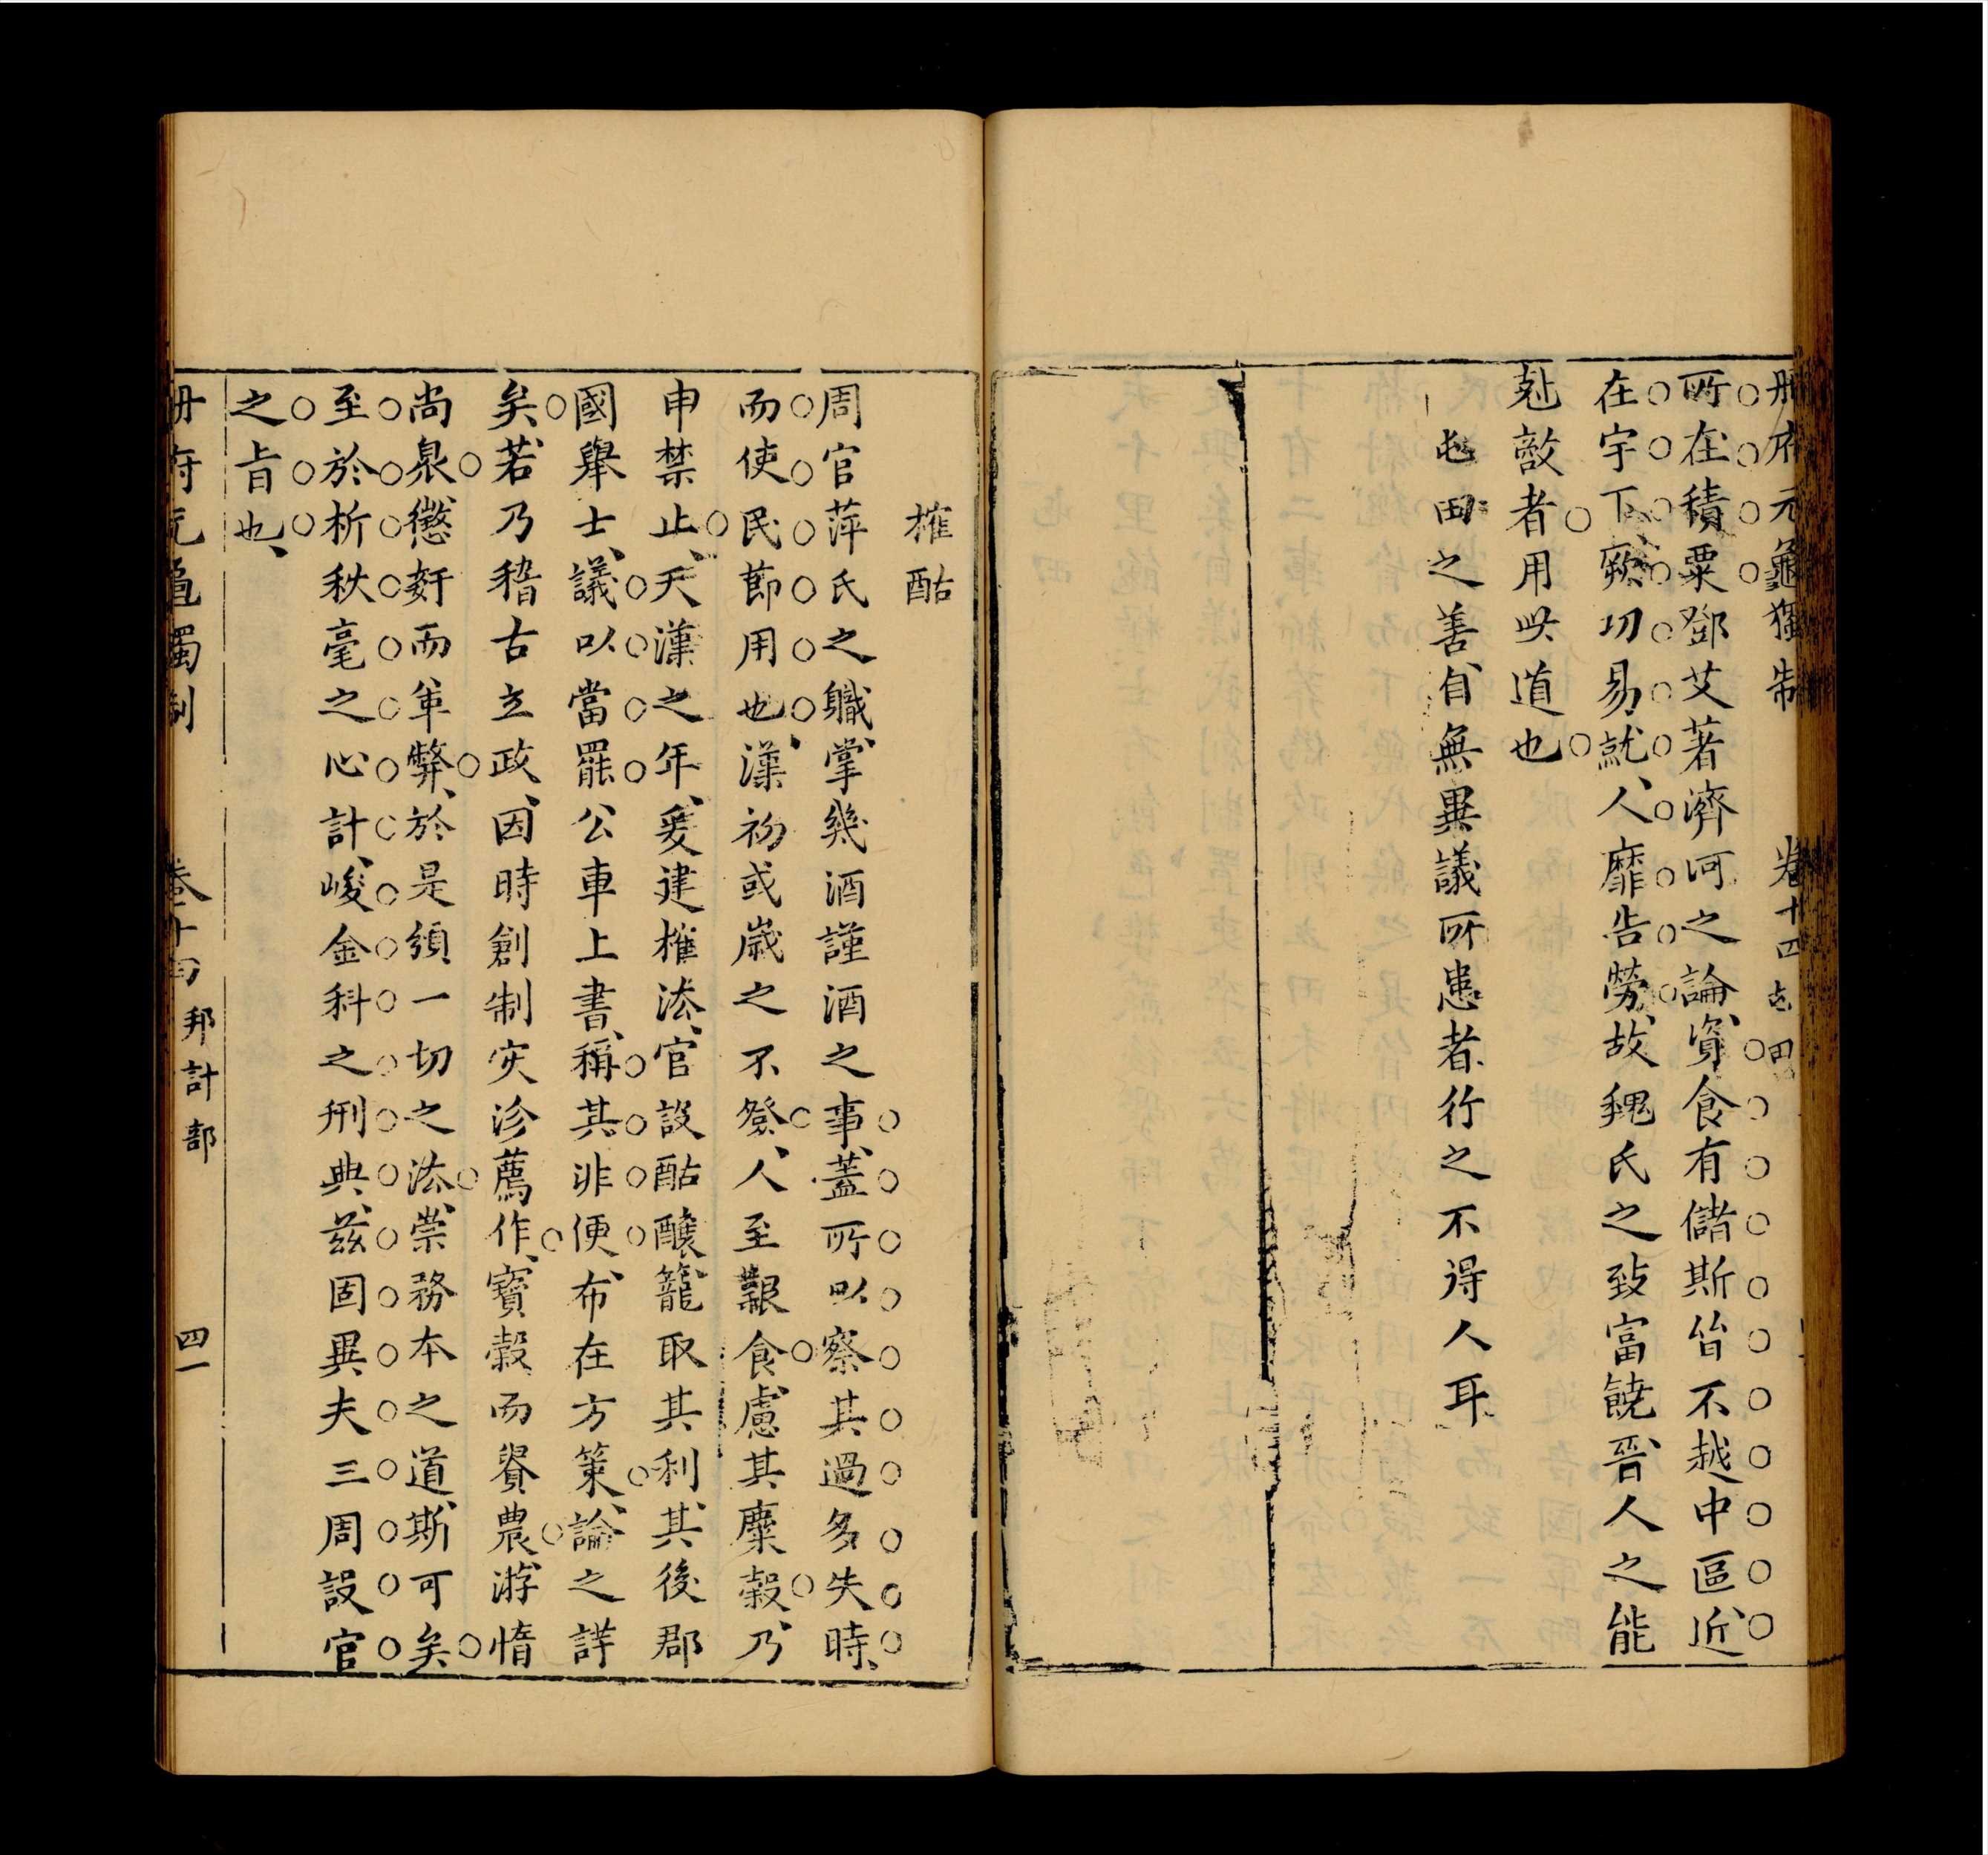 冊府元龜獨制 卷十四 屯田
所在積粟鄧艾著濟河之論資食有儲斯皆不越中區近
在宇下厥功易就人靡告勞故魏氏之致富饒晉人之能
尅敵者用此道也
屯田之善自無異議所患者行之不得人耳
榷酤
周官萍氏之職掌幾酒謹酒之事蓋所以察其過多失時
而使民節用也漢初或歲之不登人至艱食慮其糜穀乃
申禁止天漢之年爰建榷法官設酤釀籠取其利其後郡
國舉士議以當罷公車上書稱其非便布在方策論之詳
矣若乃稽古立政因時創制灾沴薦作寳穀而賚農游惰
尚衆懲姧而革弊於是須一切之法崇務本之道斯可矣
至於析秋毫之心計峻金科之刑典茲固異夫三周設官
之旨也
冊府元龜獨制 卷十四 邦計部 四一